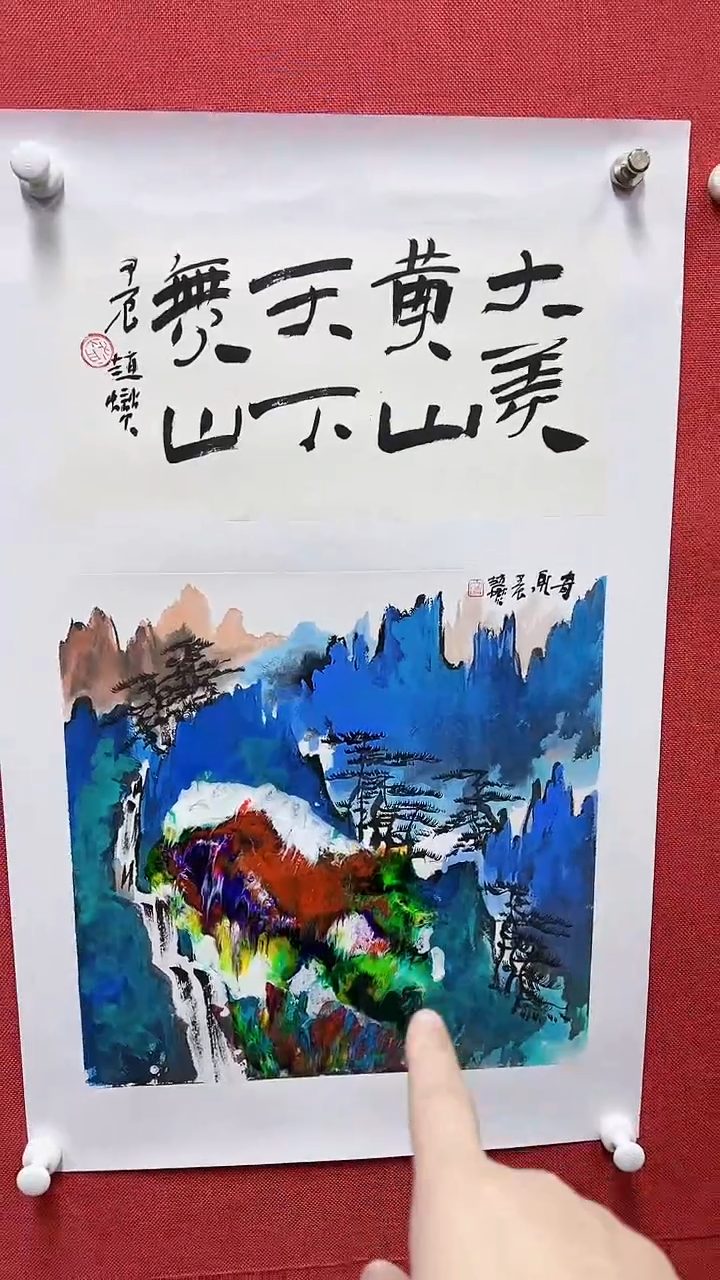 大美
黄山
天下
無山
甲辰 趙